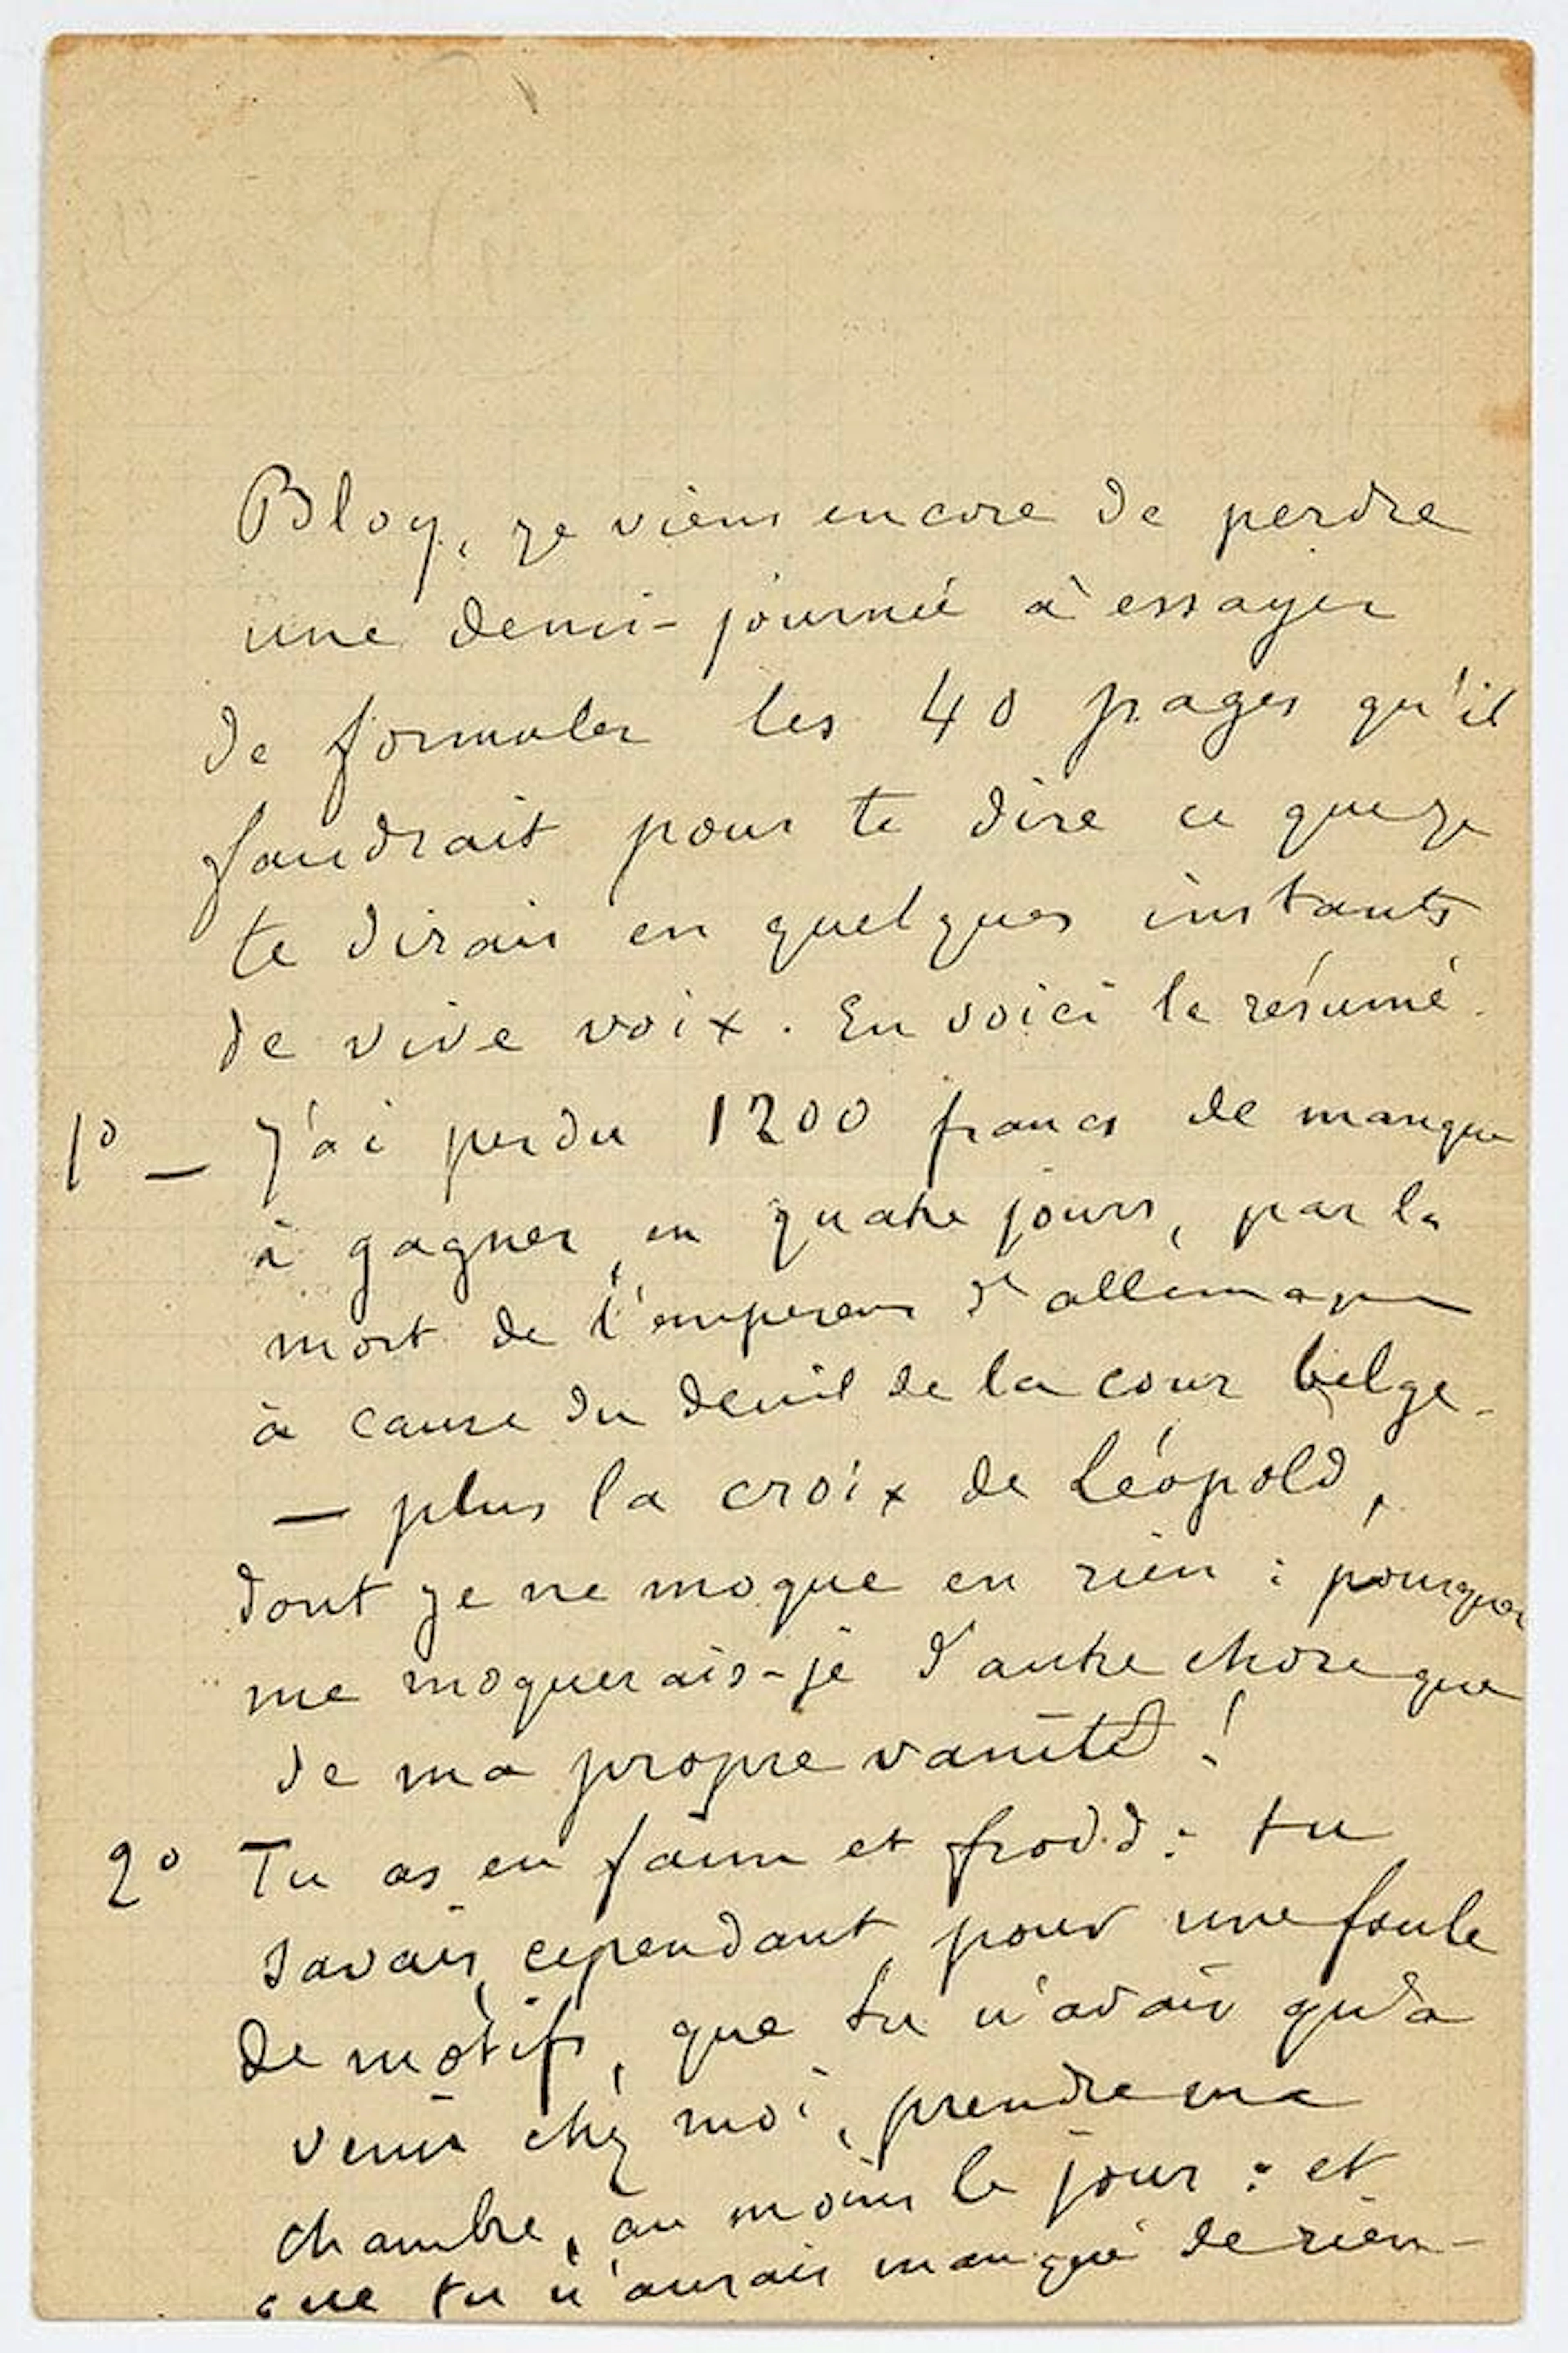 Bloy, je viens encore de perdre
une demi-journée à essayer
de formuler les 40 pages qu'il
faudrait pour te dire ce que je
te dirais en quelques instants
de vive voix. En voici le résumé.
1° — J'ai perdu 1200 francs de manque
à gagner, en quatre jours, par la
mort de l'empereur d'allemagne
à cause du deuil de la cour belge -
— plus la croix de Léopold,
dont je ne moque en rien : pourquoi
me moquerais-je d'autre chose que
de ma propre vanité !
2° Tu as eu faim et froid : tu
savais, cependant, pour une foule
de motifs, que tu n'avais qu'à
venir chez moi, prendre ma
chambre, au moins le jour : et
que tu n'aurais manqué de rien -